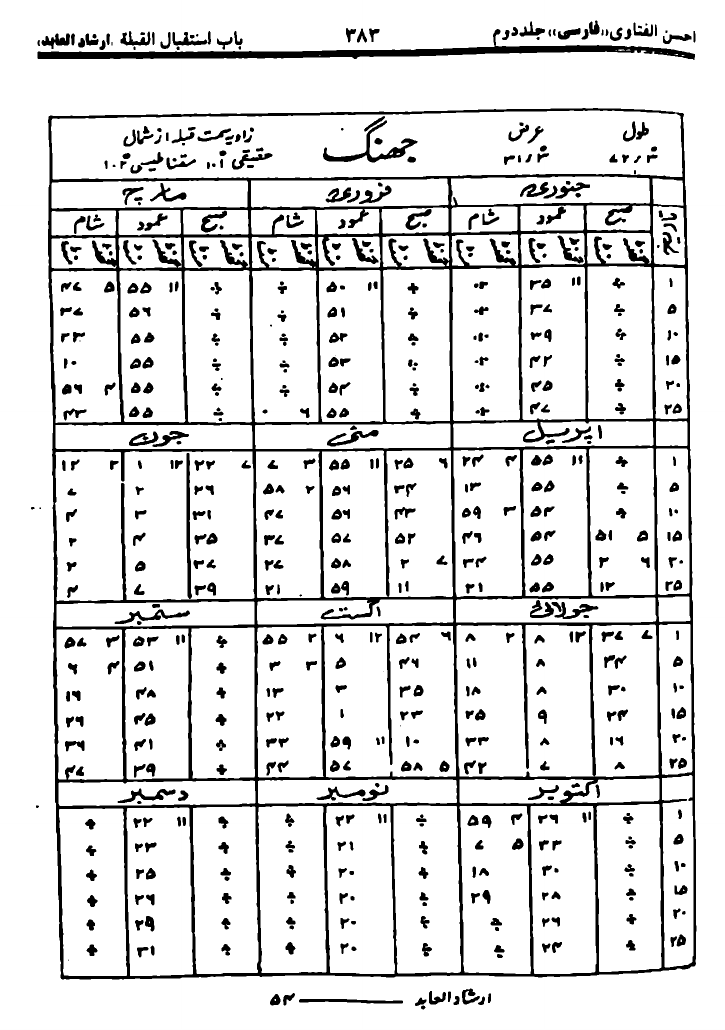 احسن الفتاوی «فارسی» جلد دوم ۳۸۳ باب استقبال القبلة «ارشاد العابد»
طول عرض جھنگ زاویہ سمت قبلہ از شمال
۷۲/۳ ۳۱/۳ حقیقی ۱۰۱ مقناطیسی ۱۰۲
جنوری فروری مارچ
صبح عمود شام صبح عمود شام صبح عمود شام
۱ ÷ ۱۱ ۳۵ ÷ ÷ ۱۱ ۵۰ ÷ ÷ ۱۱ ۵۵ ۵ ۴۷
۵ ÷ ۳۷ ÷ ÷ ۵۱ ÷ ÷ ۵۶ ۳۷
۱۰ ÷ ۳۹ ÷ ÷ ۵۲ ÷ ÷ ۵۵ ۲۳
۱۵ ÷ ۴۲ ÷ ÷ ۵۳ ÷ ÷ ۵۵ ۱۰
۲۰ ÷ ۴۵ ÷ ÷ ۵۴ ÷ ÷ ۵۵ ۴ ۵۶
۲۵ ÷ ۴۷ ÷ ÷ ۵۵ ۶ ۰ ÷ ۵۵ ۴۳
اپریل مئی جون
۱ ÷ ۱۱ ۵۵ ۴ ۲۴ ۶ ۲۵ ۱۱ ۵۵ ۳ ۷ ۷ ۲۲ ۱۲ ۱ ۲ ۱۲
۵ ÷ ۵۵ ۱۳ ۳۴ ۵۶ ۲ ۵۸ ۲۶ ۲ ۷
۱۰ ÷ ۵۴ ۳ ۵۹ ۴۳ ۵۶ ۴۷ ۳۱ ۳ ۴
۱۵ ۵ ۵۱ ۵۴ ۴۶ ۵۲ ۵۷ ۳۷ ۳۵ ۴ ۲
۲۰ ۶ ۲ ۵۵ ۳۴ ۷ ۲ ۵۸ ۲۷ ۳۷ ۵ ۲
۲۵ ۱۲ ۵۵ ۲۱ ۱۱ ۵۹ ۲۱ ۳۹ ۷ ۴
جولائی اگست ستمبر
۱ ۷ ۳۷ ۱۲ ۸ ۲ ۸ ۶ ۵۴ ۱۲ ۶ ۲ ۵۵ ÷ ۱۱ ۵۳ ۳ ۵۷
۵ ۳۴ ۸ ۱۱ ۴۶ ۵ ۳ ۳ ÷ ۵۱ ۴ ۶
۱۰ ۳۰ ۸ ۱۸ ۳۵ ۳ ۱۳ ÷ ۴۸ ۱۶
۱۵ ۲۴ ۹ ۲۵ ۲۳ ۱ ۲۲ ÷ ۴۵ ۲۶
۲۰ ۱۶ ۸ ۳۳ ۱۰ ۱۱ ۵۹ ۳۳ ÷ ۴۱ ۳۶
۲۵ ۸ ۷ ۴۲ ۵ ۵۸ ۵۷ ۴۴ ÷ ۳۹ ۴۷
اکتوبر نومبر دسمبر
۱ ÷ ۱۱ ۲۶ ۴ ۵۹ ÷ ۱۱ ۲۲ ÷ ÷ ۱۱ ۲۲ ÷
۵ ÷ ۳۳ ۵ ۷ ÷ ۲۱ ÷ ÷ ۲۳ ÷
۱۰ ÷ ۳۰ ۱۸ ÷ ۲۰ ÷ ÷ ۲۵ ÷
۱۵ ÷ ۲۸ ۲۹ ÷ ۲۰ ÷ ÷ ۲۶ ÷
۲۰ ÷ ۲۶ ÷ ÷ ۲۰ ÷ ÷ ۲۹ ÷
۲۵ ÷ ۲۴ ÷ ÷ ۲۰ ÷ ÷ ۳۱ ÷
ارشاد العابد ——— ۵۴